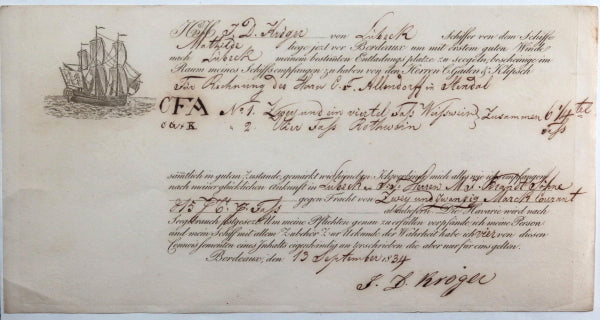 Ich, J. D. Kröger von Lübeck Schiffer von dem Schiffe
Mathilde liege jezt vor Bordeaux um mit erstem guten Winde
nach Lübeck meinem bestimten Entladungsplatze zu Seegeln, bescheinige im
Raum meines Schifs empfangen zu haben von den Herren C. Gaden & Klipsch
für Rechnung des Herrn C. F. Allendorf in Stendal
CFA N° 1. Zwey und ein viertel Fass Weisswein, Zusammen 6 1/4 tel
C G & K " 2. Vier Fass Rothwein Fass
sämtlich in gutem Zustande, gemarkt und
nach meiner glücklichen Ankunft in Lübeck an die Herren Brandt Söhne
gegen Fracht von Zwey und zwanzig Marck Courant
& 15 P. C. Fass abzuliefern. Die Havarie wird nach
Seegebrauch festgesezt. Um meine Pflichten genau zu erfüllen verpfände ich meine Person
und mein Schif mit allem Zubehör. Zur Urkunde der Wahrheit habe ich vier von diesen
Connossementen eines Inhalts eigenhändig unterschrieben die aber nur für eins gelten.
Bordeaux, den 13 September 1834
J. D. Kröger